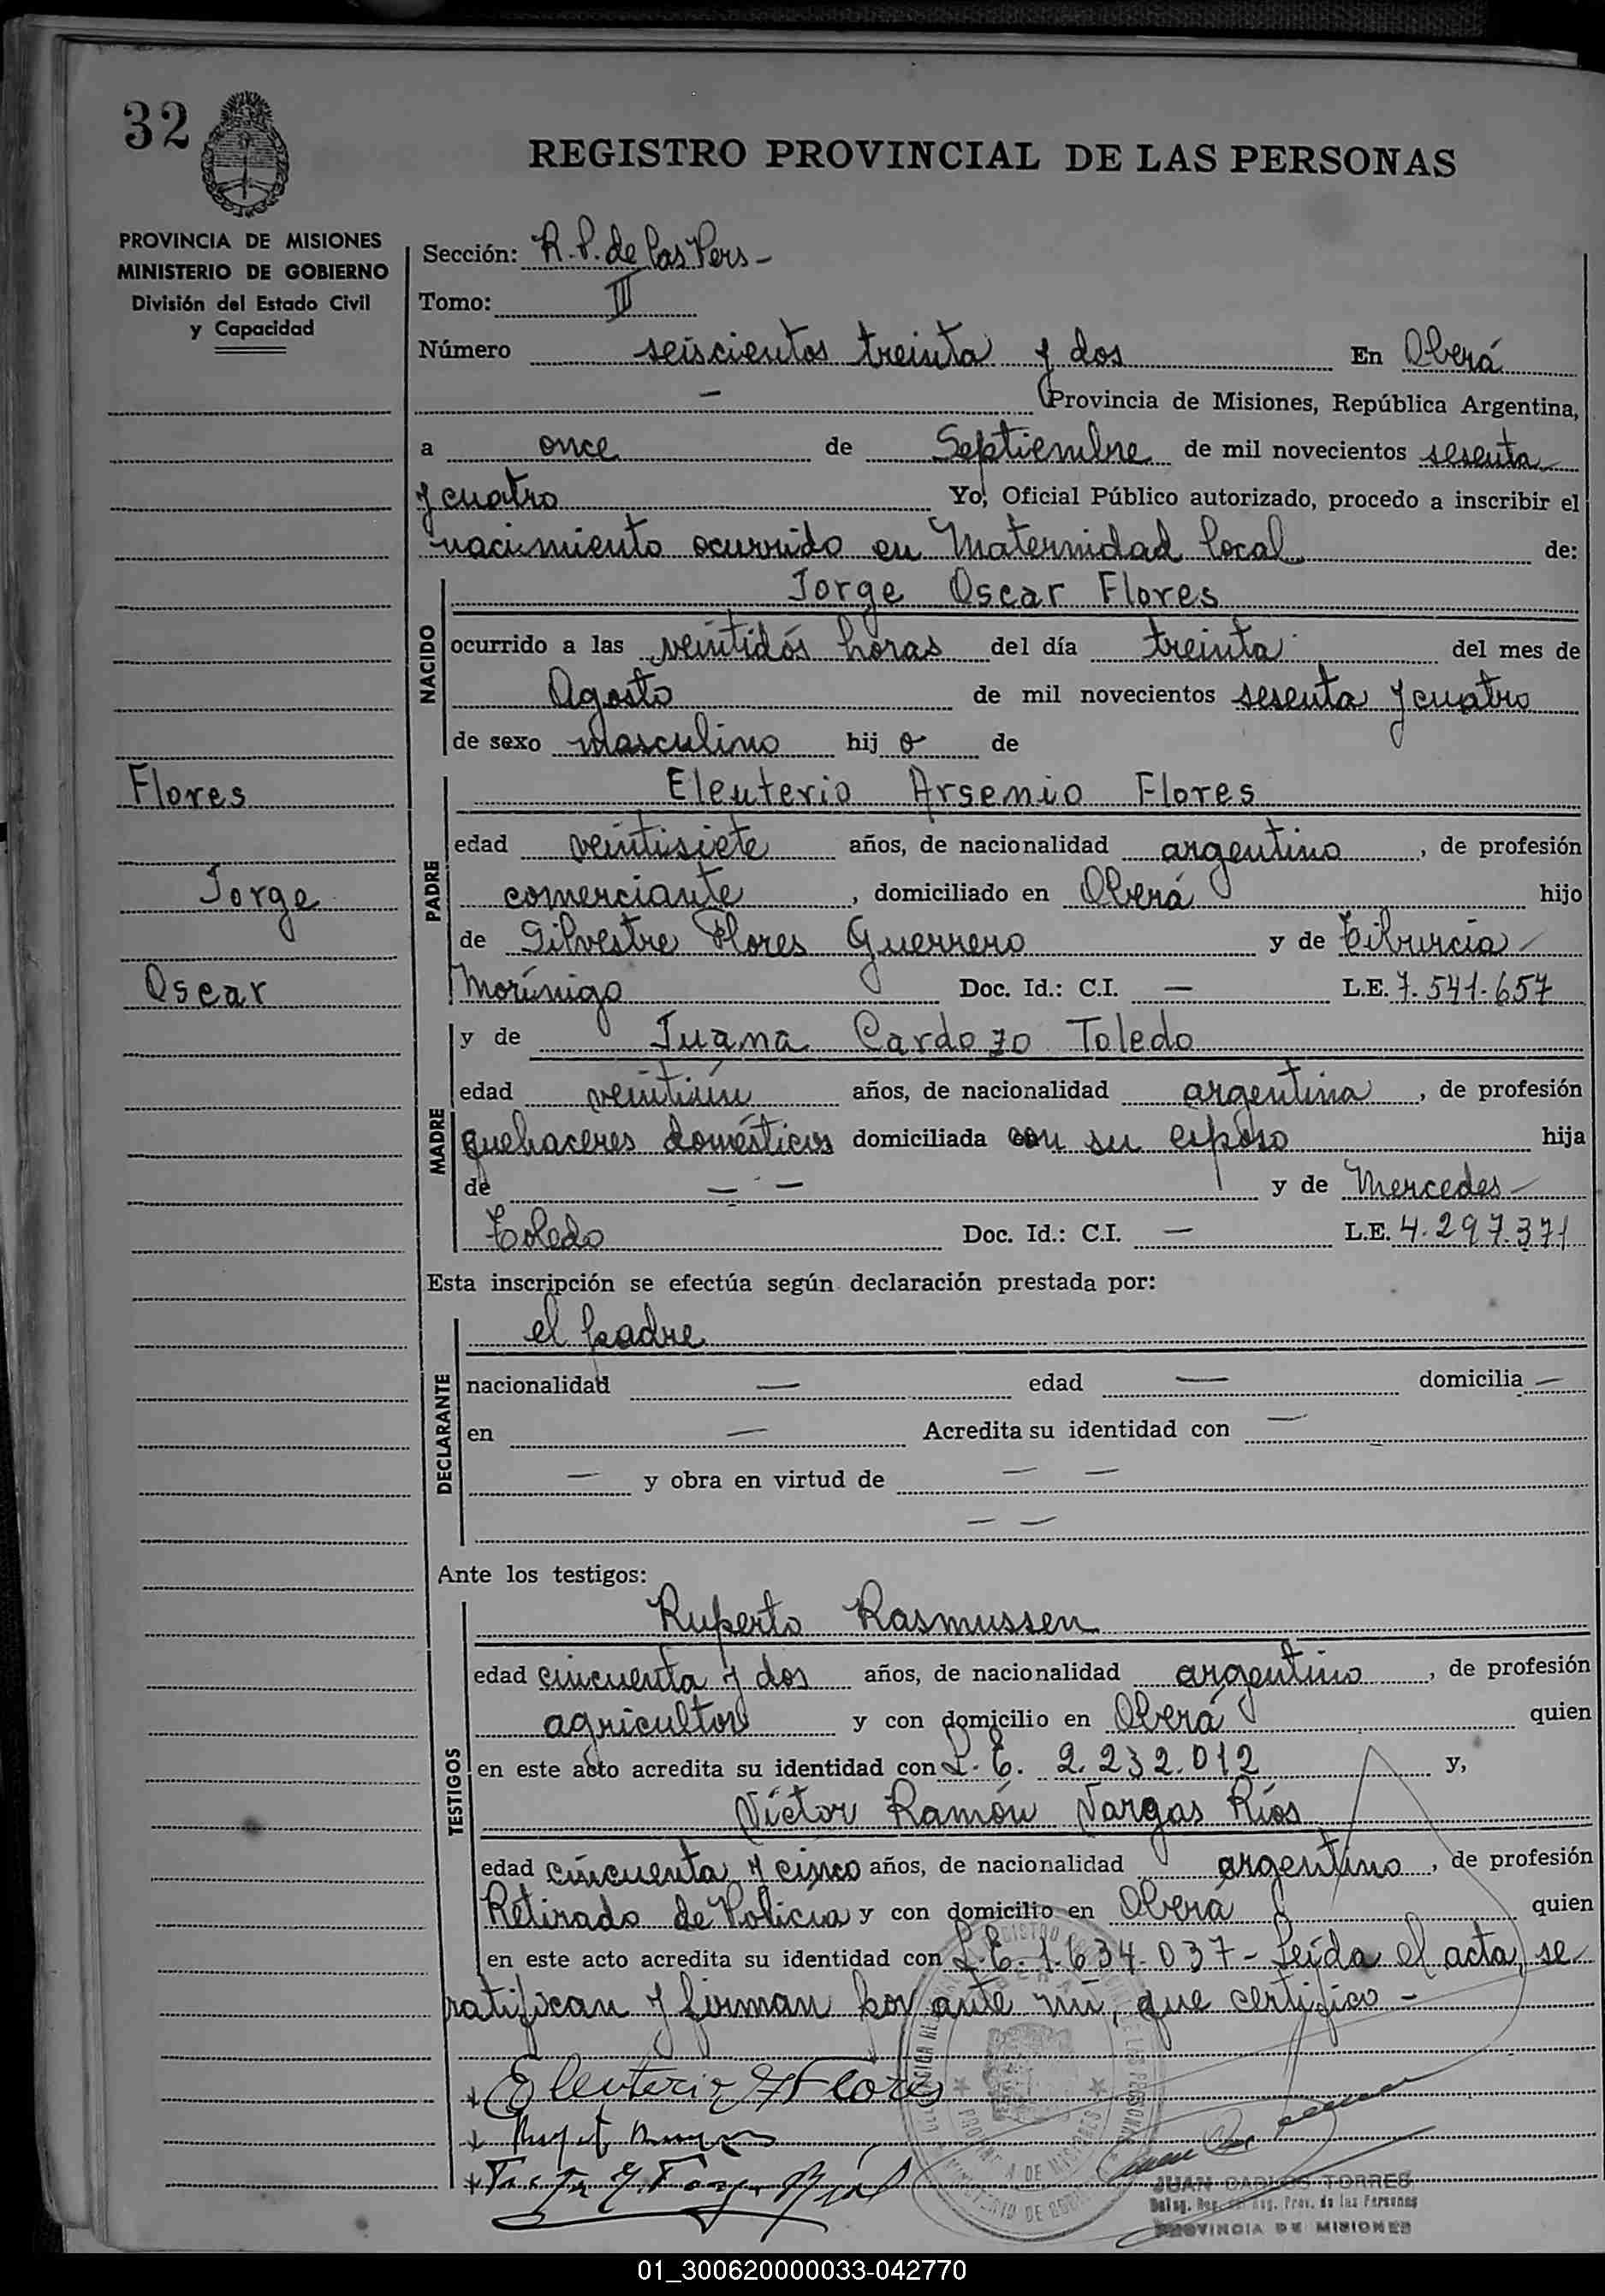 32
REGISTRO PROVINCIAL DE LAS PERSONAS
PROVINCIA DE MISIONES
MINISTERIO DE GOBIERNO
División del Estado Civil
y Capacidad
Sección: R. P. de las Pers -
Tomo: III
Número seiscientos treinta y dos En Oberá
— Provincia de Misiones, República Argentina,
a once de Septiembre de mil novecientos sesenta
y cuatro Yo, Oficial Público autorizado, procedo a inscribir el
nacimiento ocurrido en Maternidad local de:
NACIDO
Jorge Oscar Flores
ocurrido a las veintidós horas del día treinta del mes de
Agosto de mil novecientos sesenta y cuatro
de sexo masculino hij o de
Flores
Jorge
Oscar
PADRE
Eleuterio Arsenio Flores
edad veintisiete años, de nacionalidad argentino, de profesión
comerciante, domiciliado en Oberá hijo
de Silvestre Flores Guerrero y de Tiburcia
Morínigo Doc. Id.: C.I. — L.E. 7.541.657
MADRE
y de Juana Cardozo Toledo
edad veintiún años, de nacionalidad argentina, de profesión
quehaceres domésticos domiciliada con su esposo hija
de — — y de Mercedes
Toledo Doc. Id.: C.I. — L.E. 4.297.371
Esta inscripción se efectúa según declaración prestada por:
DECLARANTE
el padre
nacionalidad — edad — domicilia —
en — Acredita su identidad con —
— y obra en virtud de — —
— —
Ante los testigos:
TESTIGOS
Ruperto Rasmussen
edad cincuenta y dos años, de nacionalidad argentino, de profesión
agricultor y con domicilio en Oberá quien
en este acto acredita su identidad con L.E. 2.232.012 y,
Víctor Ramón Vargas Ríos
edad cincuenta y cinco años, de nacionalidad argentino, de profesión
Retirado de Policía y con domicilio en Oberá quien
en este acto acredita su identidad con L.E. 1.634.037 - Leída el acta, se
ratifican y firman por ante mí, que certifico -
Eleuterio Flores
JUAN CARLOS TORRES
Prov. de las Personas
PROVINCIA DE MISIONES
01_300620000033-042770